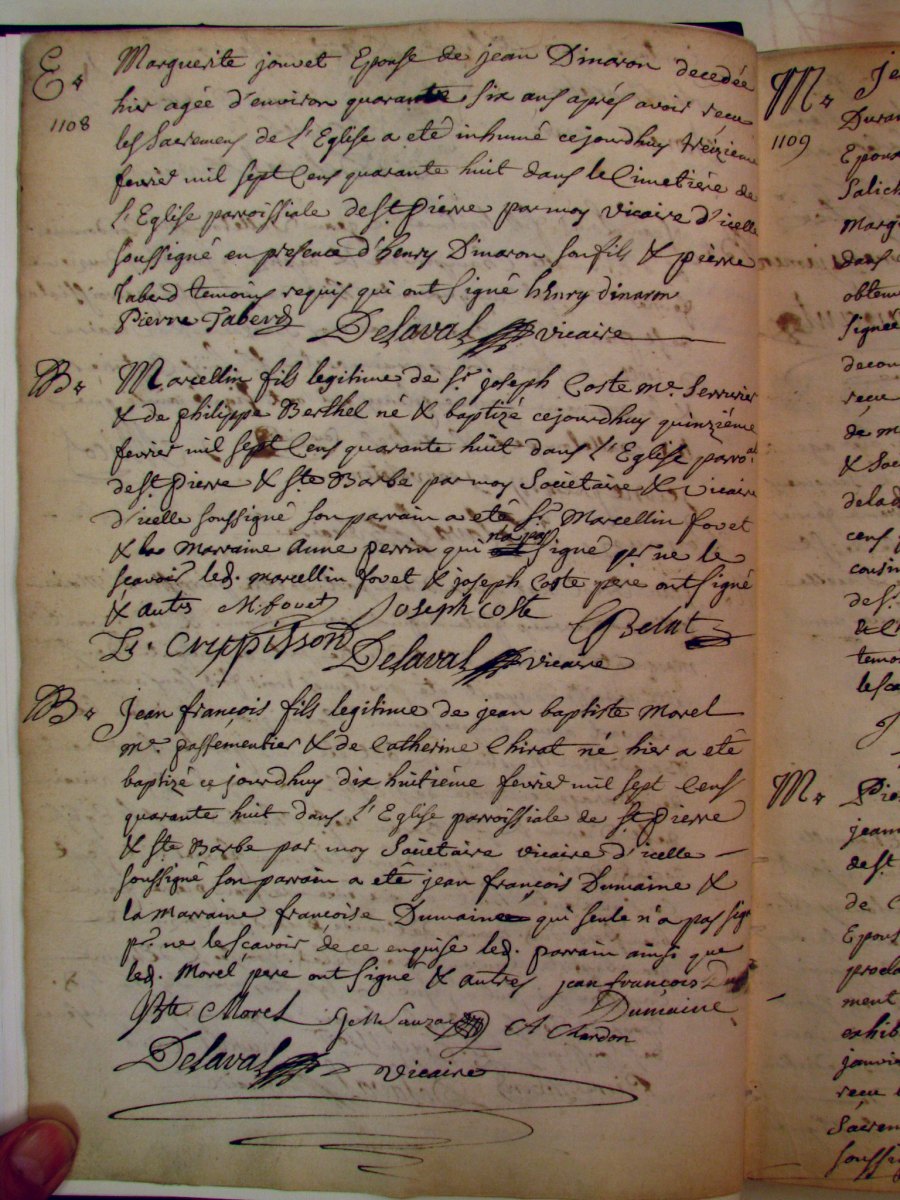 E.
1108
Marguerite jouvet Epouse de jean Dinaron decedée
hier agée d'environ quarante six ans aprés avoir recu
les Sacremens de l'Eglise a eté inhumé cejourdhuy treizieme
fevrier mil sept Cens quarante huit dans le Cimetiére de
l'Eglise parroissiale de St. Pierre par moy vicaire d'icelle
soussigné en presence d'henry Dinaron son fils & pierre
Taberd temoins requis qui ont signé henry dinaron
Pierre Taberd Delaval vicaire
B.
Marcellin fils legitime de Sr. joseph Coste me. Serrurier
& de philippe Berthel né & baptizé cejourdhuy quinziéme
fevrier mil sept Cens quarante huit dans l'Eglise parroal.
de St. pierre & Ste Barbe par moy Sociétaire & vicaire
d'icelle soussigné son parrain a eté Sr. Marcellin fovet
& la Marraine Anne perrin qui n'a pas signé pr. ne le
scavoir led. marcellin fovet & joseph Coste pere ont signé
& autres M. fovet Joseph Coste
Delaval vicaire
B.
Jean françois fils legitime de jean baptiste Morel
me. passementier & de Catherine Chirat né hier a eté
baptizé ce jourdhuy dix huitiéme fevrier mil sept Cens
quarante huit dans l'Eglise parroissiale de St. pierre
& Ste Barbe par moy Sociétaire vicaire d'icelle
soussigné son parrain a eté jean françois Dumaine &
la Marraine francoise Dumaine qui seule n'a pas signé
pr. ne le scavoir de ce enquise led. parrain ainsi que
led. Morel pere ont signé & autres jean francois
Dumaine
Bte Morel
Chardon
Delaval vicaire
M.
1109
Je
Duran
Epous
Salich
Marg
dans
obtenu
Signée
decou
receu
de m
& Sac
dela
cens
cousin
de S.
temo
M.
Pie
jeann
de St
de C
Epous
procla
ment
exhib
janvie
receu
Sacrem
soussi